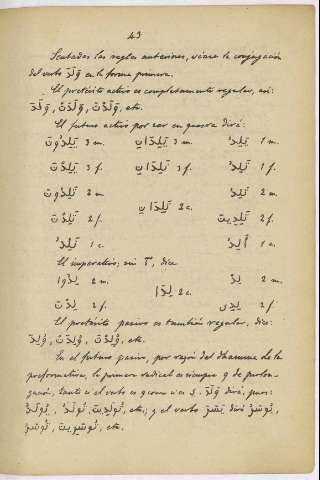 43
Sentadas las reglas anteriores, véase la conjugación
del verbo وَلَدَ en la forma primera.
El pretérito activo es completamente regular, así:
وَلَدَ, وَلَدَتْ, وَلَدْتَ, etc.
El futuro activo por ser en quesra dirá:
يَلِدُ 3 m. يَلِدَانِ 3 m. يَلِدُونَ 1 m.
تَلِدُ 3 f. تَلِدَانِ 3 f. يَلِدْنَ 1 f.
تَلِدُ 2 m. تَلِدُونَ 2 m.
تَلِدَانِ 2 c.
تَلِدِينَ 2 f. تَلِدْنَ 2 f.
أَلِدُ 1 c. نَلِدُ 1 c.
El imperativo, sin ا, dice
لِدْ 2 m. لِدُوا 2 m.
لِدَا 2 c.
لِدِى 2 f. لِدْنَ 2 f.
El pretérito pasivo es también regular, dice:
وُلِدَ, وُلِدَتْ, وُلِدْتَ, etc.
En el futuro pasivo, por razón del dhamma de la
preformativa, la primera radical es siempre و de prolon-
gación, tanto si el verbo es و como si es ى. وَلَدَ dirá, pues:
يُولَدُ, تُولَدُ, تُولَدِينَ, etc.; y el verbo يَسَرَ dirá يُوسَرُ,
تُوسَرُ, تُوسَرِينَ, etc.